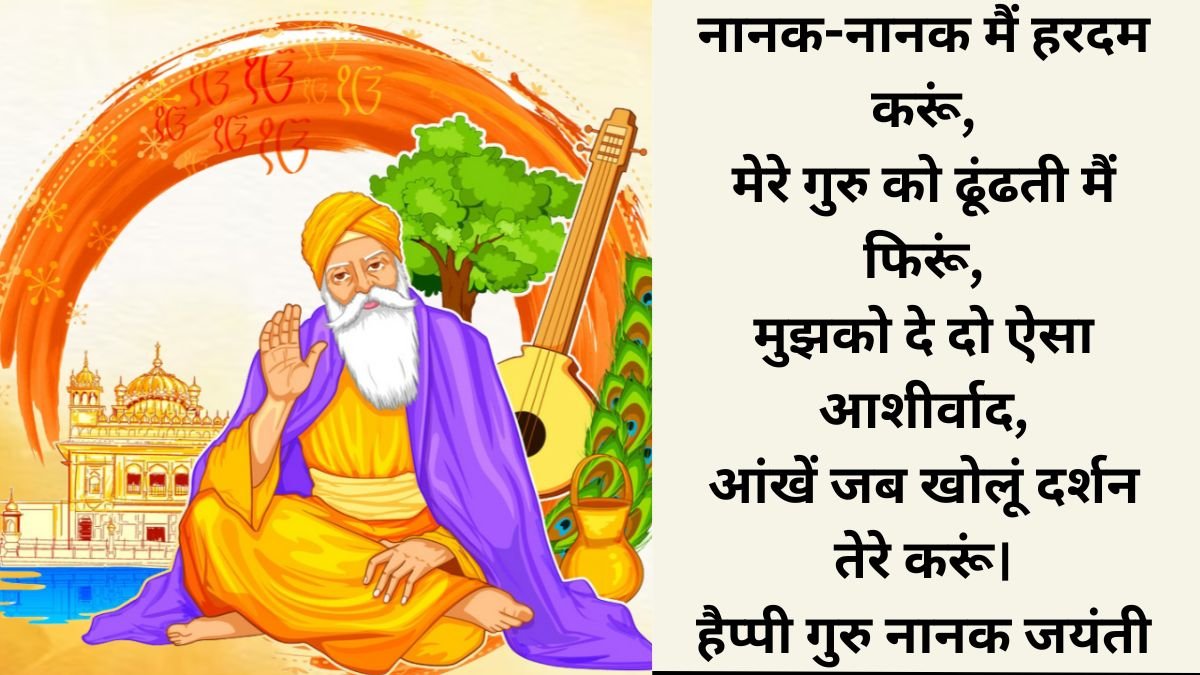 ੴ ੴ ੴ ੴ
ੴ ੴ ੴ
नानक-नानक मैं हरदम
करूं,
मेरे गुरु को ढूंढती मैं
फिरूं,
मुझको दे दो ऐसा
आशीर्वाद,
आंखें जब खोलूं दर्शन
तेरे करूं।
हैप्पी गुरु नानक जयंती